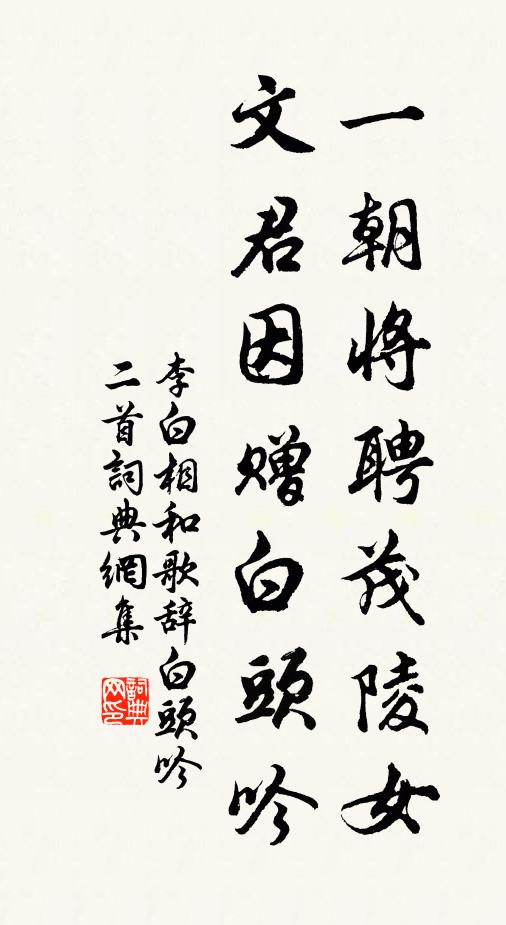 一朝將聘茂陵女
文君因贈白頭吟
李白相和歌辞白頭吟
二首詞典網集
詞典
网印